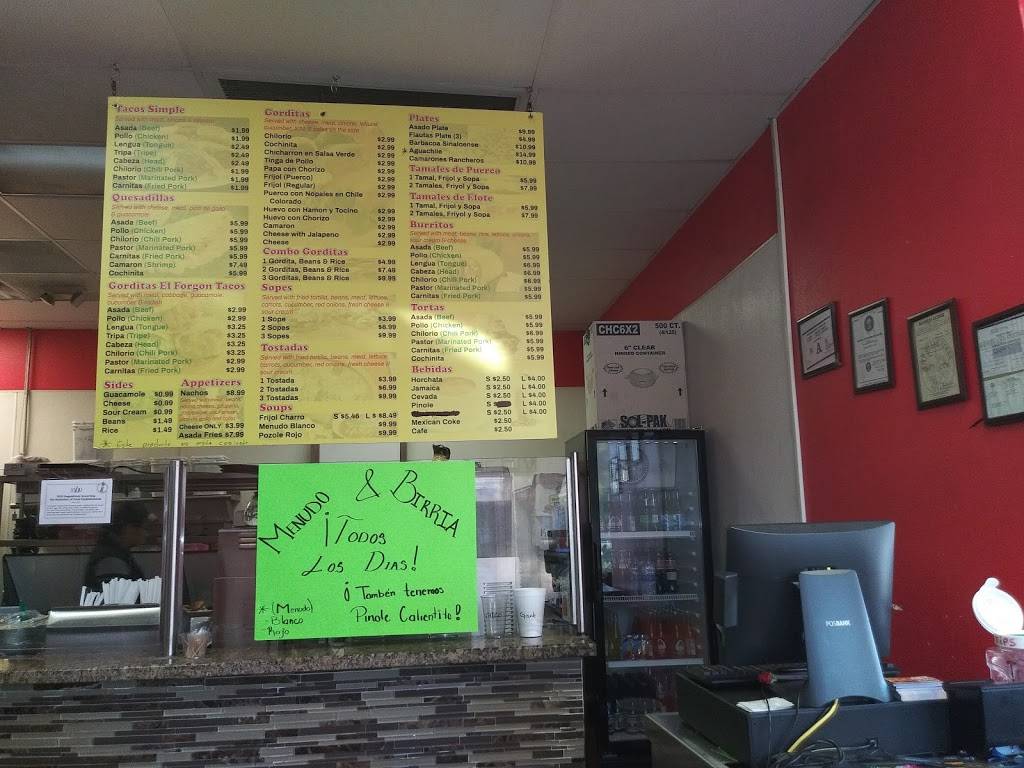 Tacos Simple
Asada (Beef) $1.99
Pollo (Chicken) $1.99
Lengua (Tongue) $2.49
Tripa (Tripe) $2.49
Cabeza (Head) $2.49
Chilorio (Chili Pork) $1.99
Pastor (Marinated Pork) $1.99
Carnitas (Fried Pork) $1.99
Quesadillas
Served with cheese, meat, pico de gallo
& guacamole
Asada (Beef) $5.99
Pollo (Chicken) $5.99
Chilorio (Chili Pork) $5.99
Pastor (Marinated Pork) $5.99
Carnitas (Fried Pork) $5.99
Camaron (Shrimp) $7.49
Cochinita $5.99
Gorditas El Forgon Tacos
Served with meat, cabbage, guacamole,
cucumber & radish
Asada (Beef) $2.99
Pollo (Chicken) $2.99
Lengua (Tongue) $3.25
Tripa (Tripe) $3.25
Cabeza (Head) $3.25
Chilorio (Chili Pork) $3.25
Pastor (Marinated Pork) $2.99
Carnitas (Fried Pork) $2.99
Sides
Guacamole $0.99
Cheese $0.99
Sour Cream $0.99
Beans $1.49
Rice $1.49
Appetizers
Nachos $8.99
Cheese ONLY $3.99
Asada Fries $7.99
Gorditas
Chilorio $2.99
Cochinita $2.99
Chicharron en Salsa Verde $2.99
Tinga de Pollo $2.99
Papa con Chorizo $2.99
Frijol (Puerco) $2.99
Frijol (Regular) $2.99
Puerco con Nopales en Chile $2.99
Colorado
Huevo con Hamon y Tocino $2.99
Huevo con Chorizo $2.99
Camaron $2.99
Cheese with Jalapeno $2.99
Cheese $2.99
Combo Gorditas
1 Gordita, Beans & Rice $4.99
2 Gorditas, Beans & Rice $7.49
3 Gorditas, Beans & Rice $9.99
Sopes
Served with fried tortilla, beans, meat, lettuce,
carrots, cucumber, red onions, fresh cheese &
sour cream
1 Sope $3.99
2 Sopes $6.99
3 Sopes $9.99
Tostadas
Served with fried tortilla, beans, meat, lettuce,
carrots, cucumber, red onions, fresh cheese &
sour cream
1 Tostada $3.99
2 Tostadas $6.99
3 Tostadas $9.99
Soups
Frijol Charro S $5.46 L $8.49
Menudo Blanco $9.99
Pozole Rojo $9.99
Plates
Asado Plate $9.99
Flautas Plate (3) $4.99
Barbacoa Sinaloense $10.99
Aguachile $14.99
Camarones Rancheros $10.99
Tamales de Puerco
1 Tamal, Frijol y Sopa $5.99
2 Tamales, Friyol y Sopa $7.99
Tamales de Elote
1 Tamal, Frijol y Sopa $5.99
2 Tamales, Friyol y Sopa $7.99
Burritos
Served with meat, beans, rice, lettuce, onions,
sour cream & cheese
Asada (Beef) $5.99
Pollo (Chicken) $5.99
Lengua (Tongue) $6.99
Cabeza (Head) $6.99
Chilorio (Chili Pork) $6.99
Pastor (Marinated Pork) $5.99
Carnitas (Fried Pork) $5.99
Tortas
Asada (Beef) $5.99
Pollo (Chicken) $5.99
Chilorio (Chili Pork) $6.99
Pastor (Marinated Pork) $5.99
Carnitas (Fried Pork) $5.99
Cochinita $5.99
Bebidas
Horchata S $2.50 L $4.00
Jamaica S $2.50 L $4.00
Cevada S $2.50 L $4.00
Pinole S L $4.00
S $2.50 L $4.00
Mexican Coke $2.50
Cafe $2.50
MENUDO & BIRRIA
¡TODOS
LOS DIAS!
¡Tambén tenemos
Pinole Calientito!
*-(Menudo)
-Blanco
-Rojo
CHC6X2 500 CT.
6" CLEAR
HINGED CONTAINER
SOL-PAK
POSBANK
TIPS